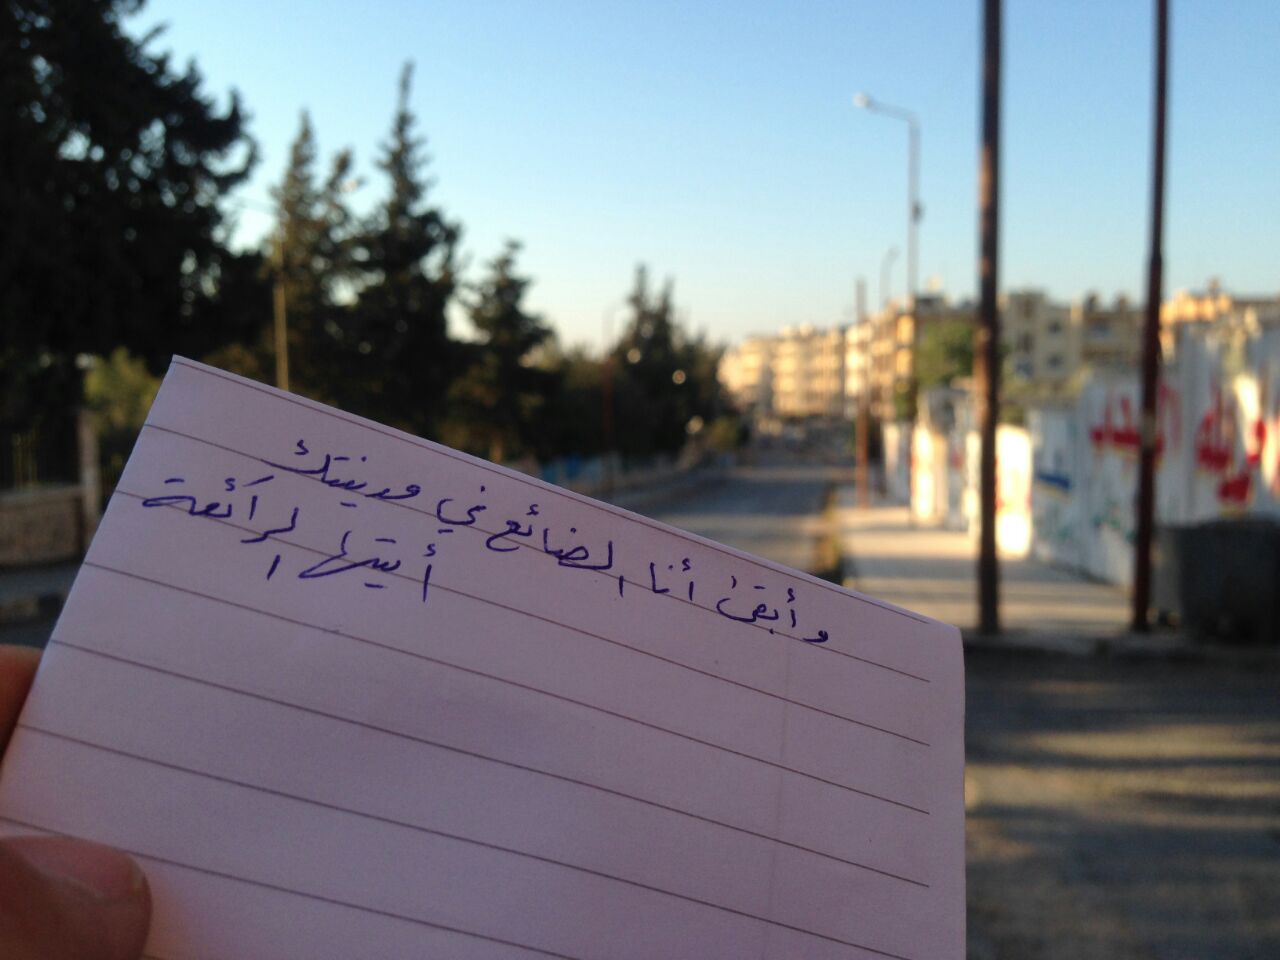 وأبقىٰ أنا الضائع في مدينتك
أيتها الرائعة